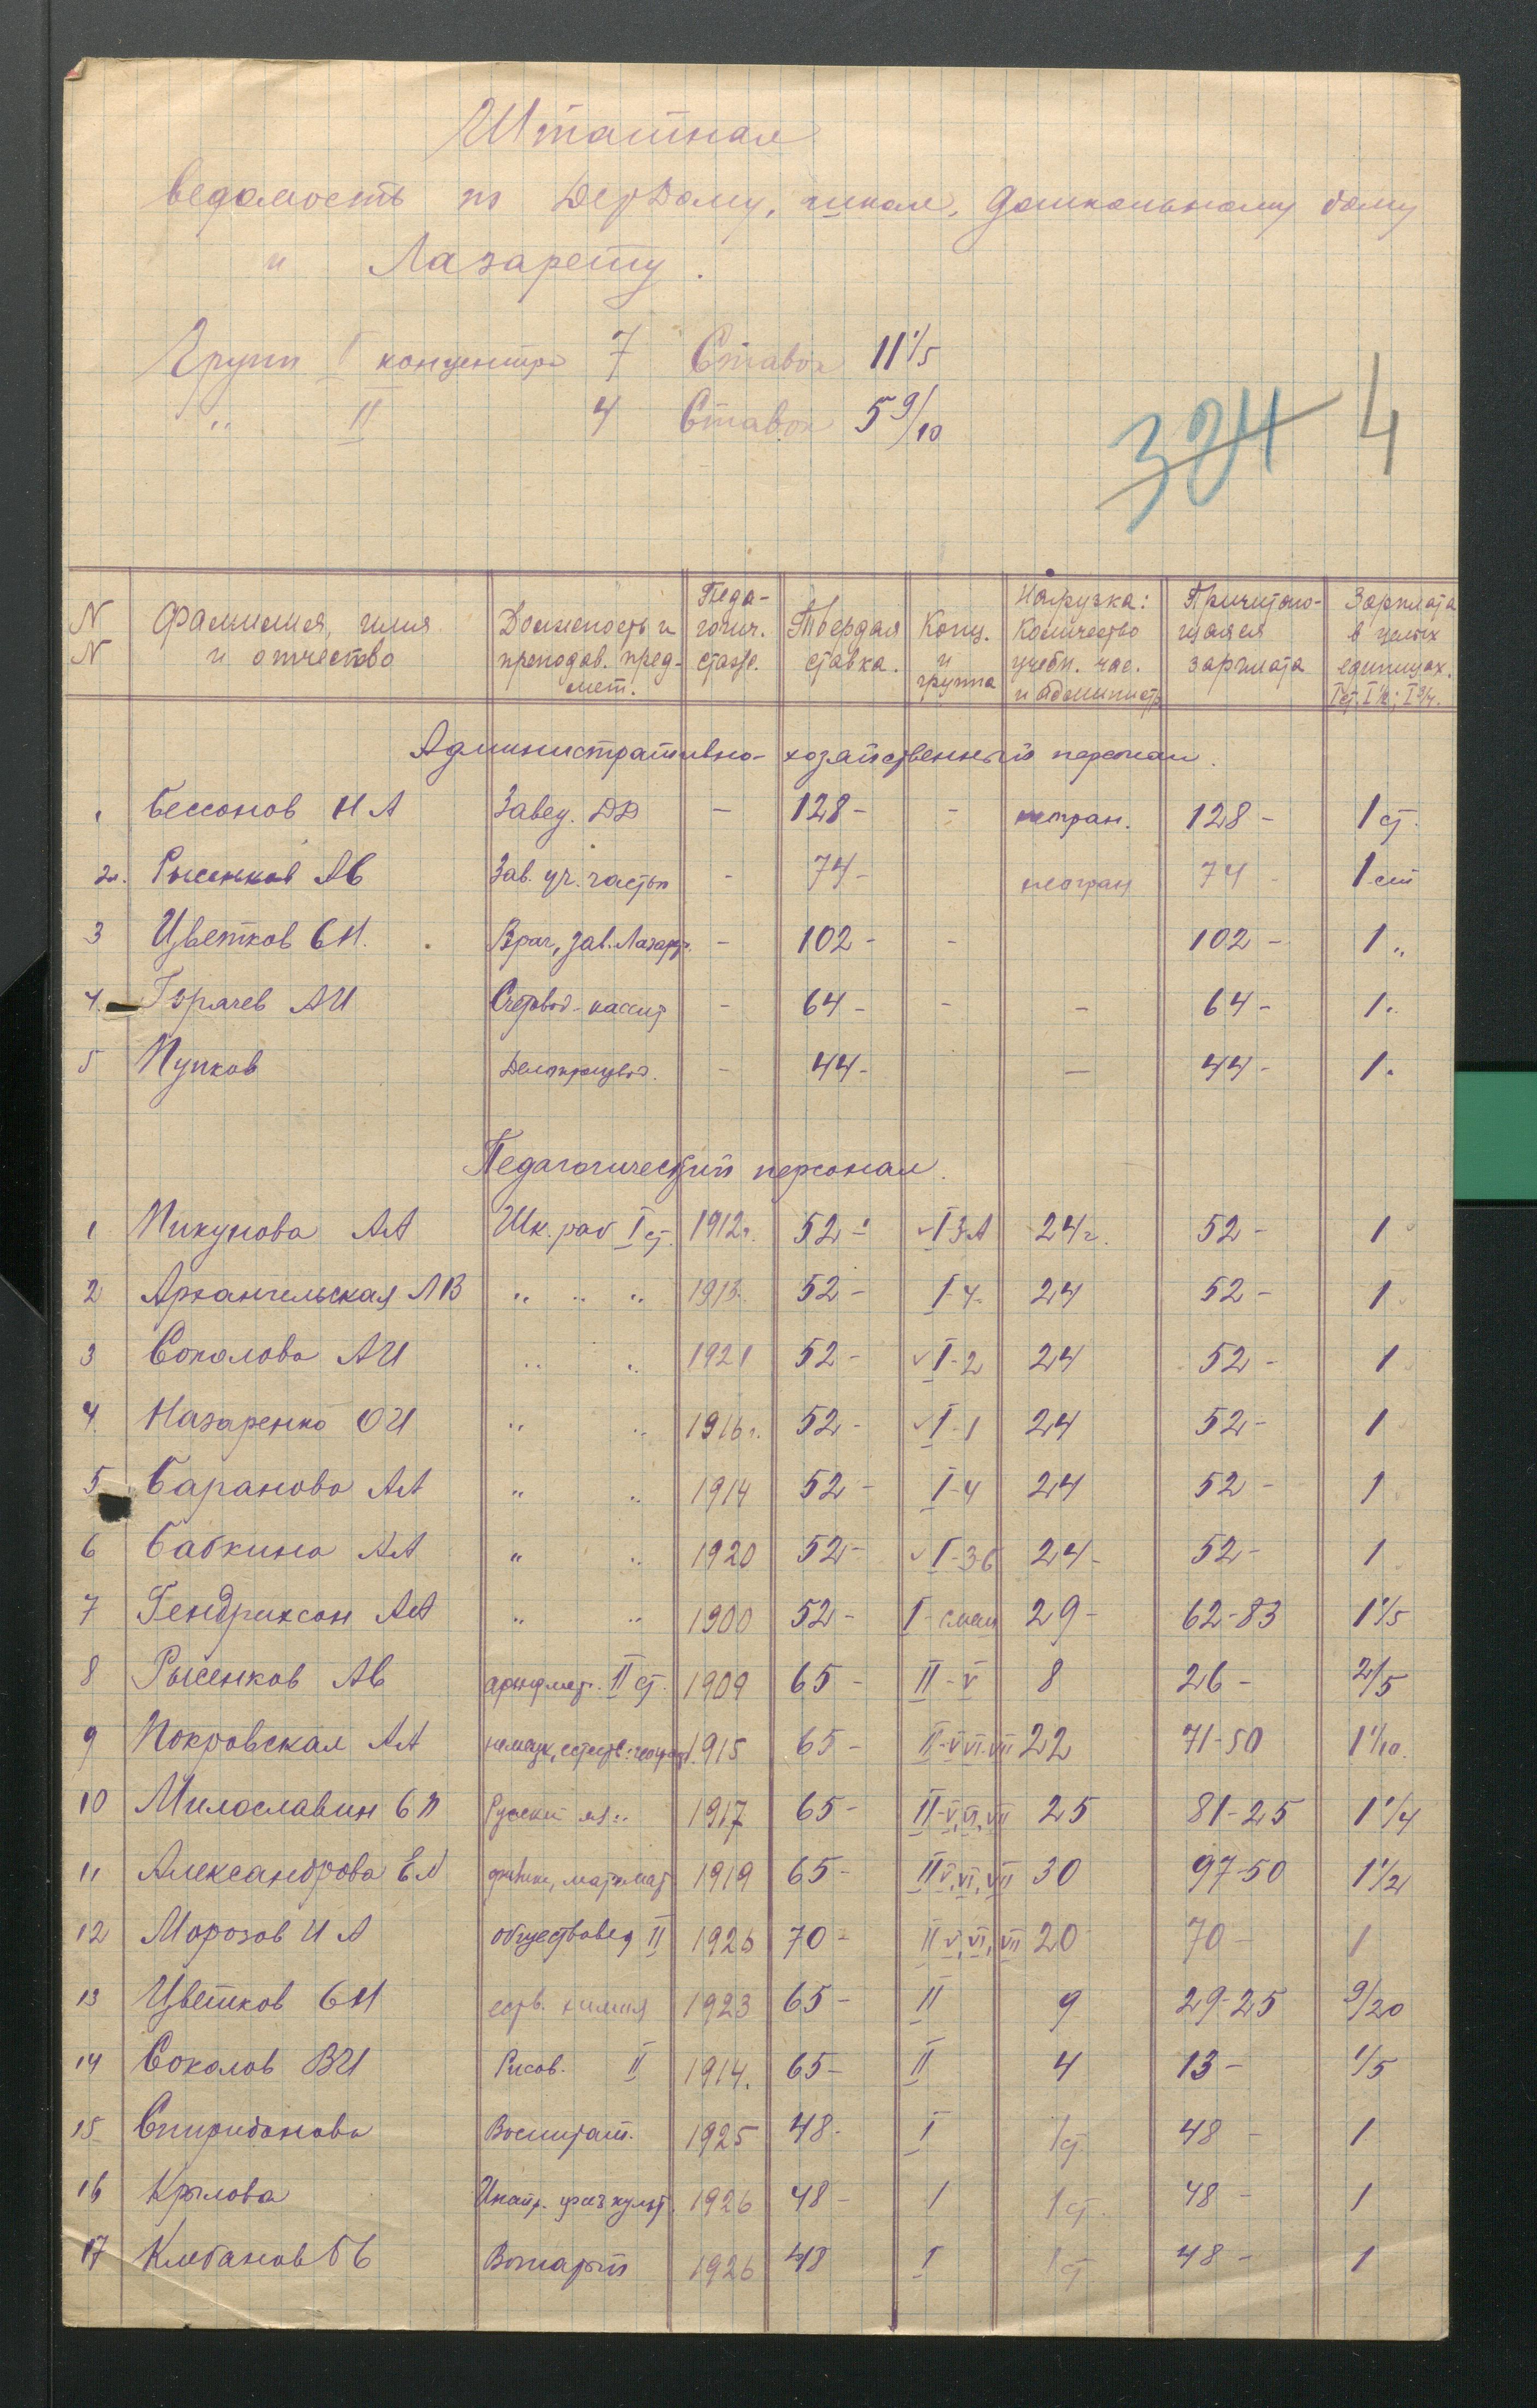 Штатная
ведомость по ДерДому, школе, дошкольному дому
и Лазарету.
Групп I концентра 7 Ставок 11 1/5
" II 4 Ставок 5 9/10
324 4
N N Фамилия, имя и отчество Должность и преподав. предмет. Педагогич. стаж. Твердая ставка. Конц. и группа Нагрузка: Количество учебн. час. и администр. Причитающаяся зарплата Зарплата в целых единицах. I ст. I 1/2; I 3/4.
Административно-хозяйственный персонал.
1 Бессонов Н А Завед. ДД – 128 – – неогран. 128 – 1 ст.
2. Рысенков АВ Зав. уч. частью – 74 – неогран 74 – 1 ст
3 Цветков СН. Врач, зав. Лазар. – 102 – – 102 – 1 "
4. Горячев АИ Счетовод-кассир – 64 – – – 64 – 1 "
5 Пупков Делопроизвод. – 44 – – – 44 – 1 "
Педагогический персонал.
1 Пикунова АА Шк. раб I ст. 1912г. 52 – I 3А 24ч. 52 – 1
2 Архангельская ЛВ " " " 1913. 52 – I-4. 24 52 – 1
3 Соколова АИ " " 1921 52 – I-2 24 52 – 1
4. Назаренко ОИ " " 1916г. 52 – I-1 24 52 – 1
5 Баранова АА " " 1914 52 – I-4 24 52 – 1
6 Бабкина АА " " 1920 52 – I-3б 24 – 52 – 1
7 Гендриксон АА " " 1900 52 – I- 29 – 62-83 1 1/5
8 Рысенков АВ арифмет. II ст. 1909 65 – II-V 8 26 – 2/5
9 Покровская АА нем яз, естеств. географ. 1915 65 – II-V VI VII 22 71-50 1 1/10.
10 Милославин СП Русский яз. 1917 65 – II-V, VI, VII 25 81-25 1 1/4
11 Александрова ЕЛ физик, математ 1919 65 – II V, VI, VII 30 97-50 1 1/2
12 Морозов И А обществовед II 1926 70 – II V, VI, VII 20 70 – 1
13 Цветков СН еств. химия 1923 65 – II 9 29-25 9/20
14 Соколов ВИ Рисов. II 1914. 65 – II 4 13 – 1/5
15 Спиридонова Воспитат. 1925 48 – I 1 ст 48 – 1
16 Крылова Инстр. физкульт. 1926 48 – I 1 ст. 48 – 1
17 Клебанов БВ Вожатый 1926 48 I 1 ст 48 – 1